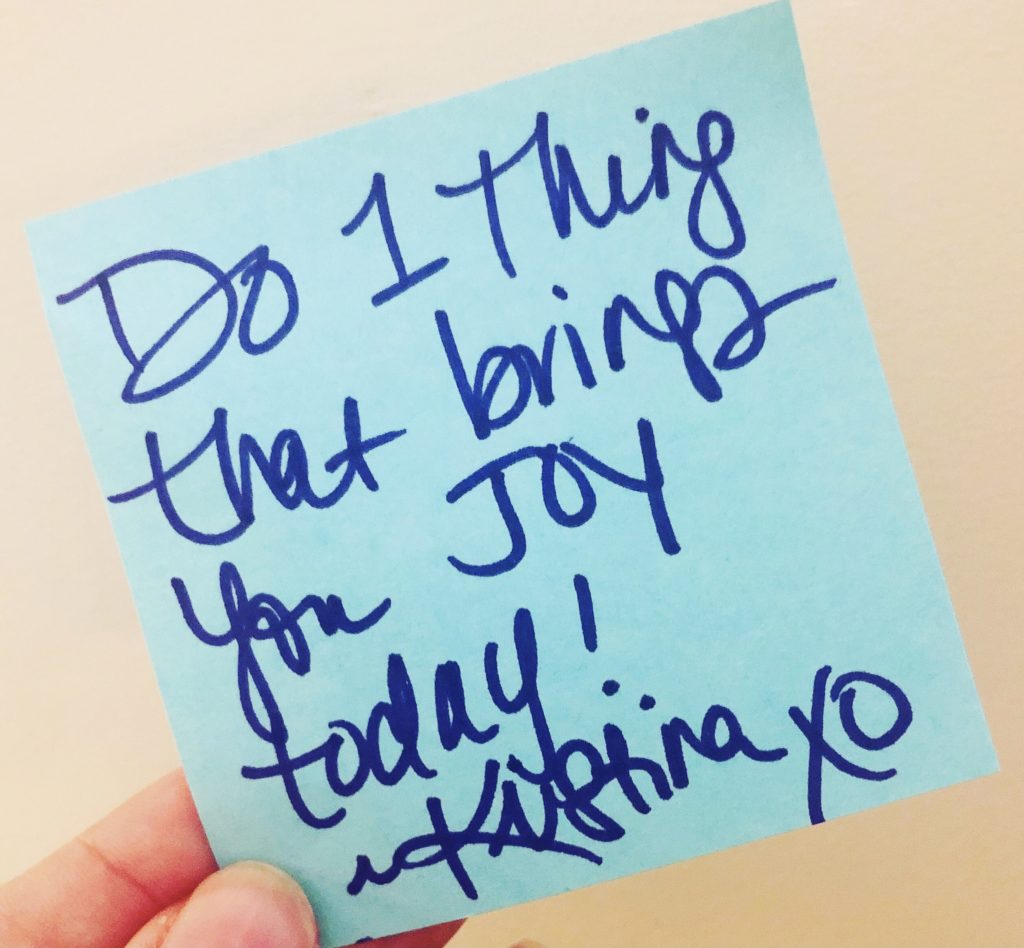 Do 1 thing
that brings
you JOY
today!
~Kristina XO